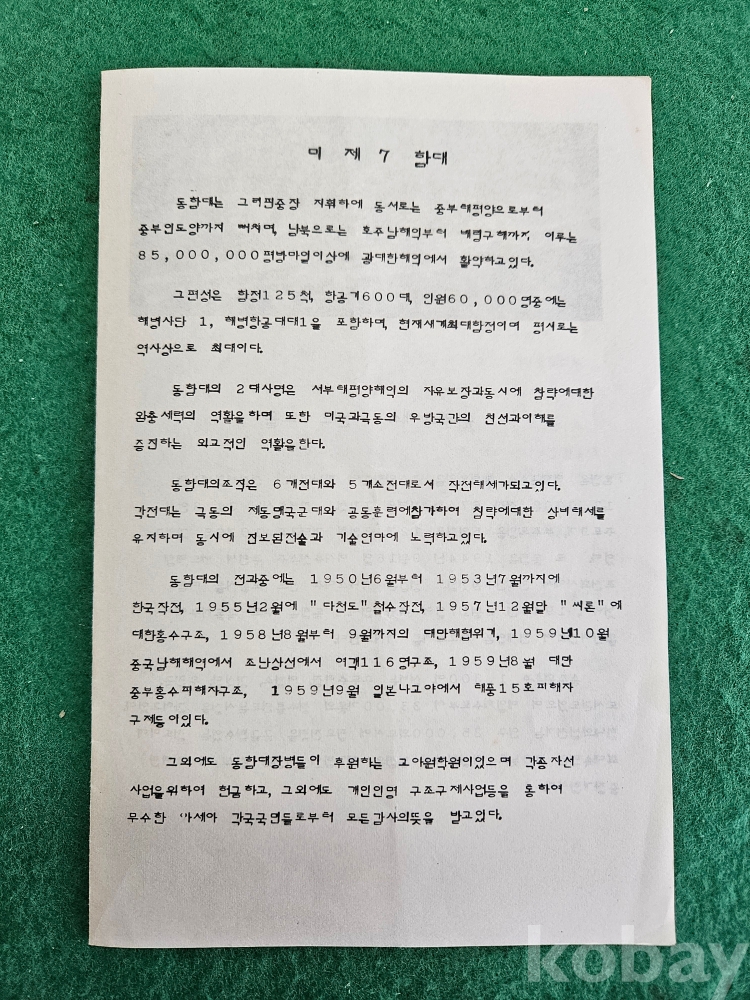 미 제 7 함대
동함대는 그리핀중장 지휘하에 동서로는 중부태평양으로부터
중부인도양까지 뻐치며, 남북으로는 호주남해역부터 베링구해까지 이루는
85,000,000평방마일이상에 광대한해역에서 활약하고있다.
그편성은 함정125척, 항공기600대, 인원60,000명중에는
해병사단 1, 해병항공대대1을 포함하며, 현재세계최대함정이며 평시로는
역사상으로 최대이다.
동함대의 2대사명은 서부태평양해역의 자유보장과동시에 침략에대한
완충세력의 역활을하며 또한 미국과극동의 우방국간의 친선과이해를
증진하는 외교적인 역활을한다.
동함대의조직은 6개전대와 5개소전대로서 작전태세가되고있다.
각전대는 극동의 제동맹국군대와 공동훈련에참가하여 침략에대한 상비태세를
유지하며 동시에 진보된전술과 기술연마에 노력하고있다.
동함대의 전과중에는 1950년6월부터 1953년7월까지에
한국작전, 1955년2월에 "다천도"철수작전, 1957년12월말 "씨론"에
대한홍수구조, 1958년8월부터 9월까지의 대만해협위기, 1959년10월
중국남해해역에서 조난상선에서 여객116명구조, 1959년8월 대만
중부홍수피해자구조, 1959년9월 일본나고야에서 태풍15호피해자
구제등이있다.
그외에도 동함대장병들이 후원하는 고아원학원이있으며 각종자선
사업을위하여 헌금하고, 그외에도 개인인명 구조구제사업등을 통하여
무수한 아세아 각국국민들로부터 모든감사의뜻을 받고있다.
kobay